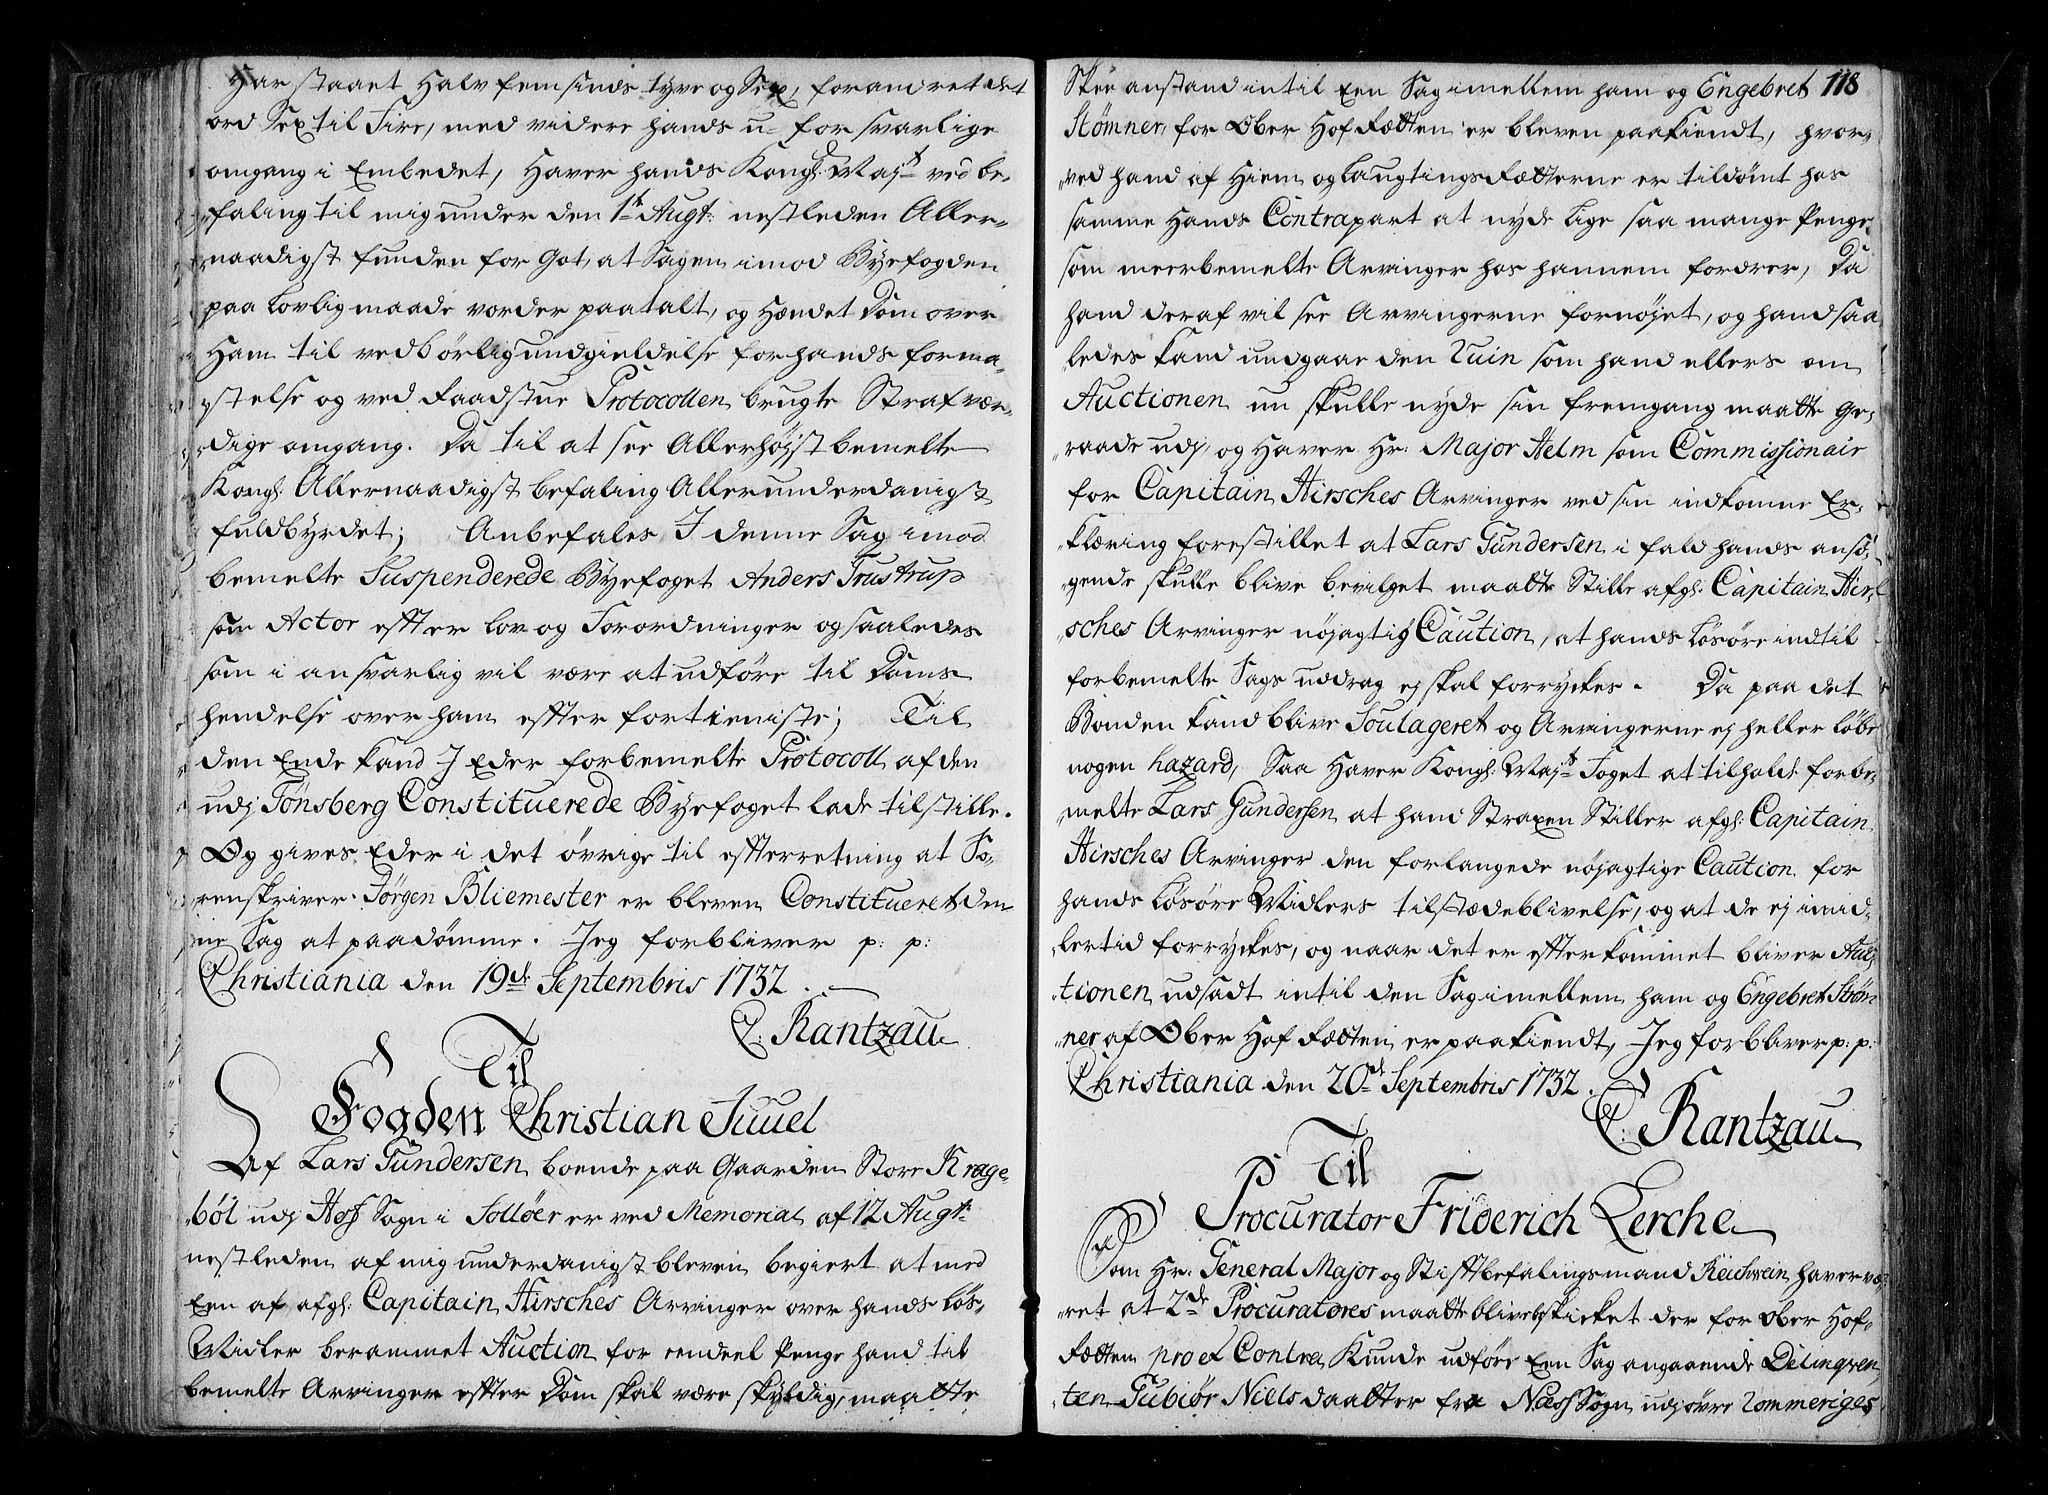 Har staaet Halvfemsinds tyve og Sex, forandret det
ord Sex til Fire, med videre hands u- forsvarlige
omgang i Embedet, Haver hands Kongl: Majt ved be-
faling til mig under den 1te Augt: nestleden Aller-
naadigst funden for Got, at Sagen imod Byefogden
paa Lovlig maade vorder paatalt, og Hændet Dom over
Ham til vedbörlig undgieldelse for hands forma-
stelse og ved Raadstue Protocollen brugte Strafvær-
dige omgang. Da til at see Allerhöjst bemelte
Kongl: Allernaadigst befaling Allerunderdanigst
fuldbyrdet; Anbefales I denne Sag imod
bemelte Suspenderede Byefoget Anders Trustrup
som Actor effter Lov og Forordninger og saaledes
som i ansvarlig vil være at udföre til Doms
hendelse over ham effter fortieniste; Til
den Ende kand I Eder forbemelte Protocoll af den
udj Tönsberg Constituerede Byefoget lade tilstille.
Og gives Eder i det övrige til effterretning at So-
renskriver Jörgen Bliemester er bleven Constitueret den-
ne Sag at paadömme. Jeg forbliver p: p:
Christiania den 19de Septembris 1732.
C: Rantzau
Til
Fogden Christian Juuel
Af Lars Gundersen boende paa Gaarden Store Krage-
böl udj Hoff Sogn i Sollöer er ved Memorial af 12 Augti
nestleden af mig underdanigst bleven begiert at med
Een af afgl: Capitain Hirsches Arvinger over hands Lös-
Midler berammet Auction for eendeel Penge hand til
bemelte Arvinger effter Dom skal være skyldig, maatte
118
Skee anstand intil Een Sag imellem ham og Engebret
Stömner, for Ober Hof Rætten er bleven paakiendt, hvor-
ved hand af Hiem og Laugtings Rætterne er tildömt hos
samme Hands Contrapart at nyde Lige saa mange Penge
som meerbemelte Arvinger hos hannem fordrer, Da
hand deraf vil see Arvingerne fornöjet, og hand saa
ledes kand undgaae den Ruin som hand ellers om
Auctionen nu skulle nyde sin fremgang maatte Ge-
raade udj, og Haver Hr: Major Helm som Commissionair
for Capitain Hirsches Arvinger ved sin indkomne Er-
klæring forestillet at Lars Gundersen i fald hands ansö-
gende skulle blive bevilget maatte Stille afgl: Capitain Hir-
sches Arvinger nöjagtig Caution, at hands Lösöre indtil
forbemelte Sags uddrag ej skal forryckes. Da paa det
Bonden kand blive Soulageret og Arvingerne ej heller löbe
nogen hazard, Saa Haver Kongl: Majts Foget at tilholde forbe-
melte Lars Gundersen at hand Straxen Stiller afgl: Capitain
Hirsches Arvinger den forlangede nöjagtige Caution for
hands Lösöre Midlers tilstædeblivelse, og at de ej imid-
lertid forryckes, og naar det er effterkommet bliver Auc-
tionen udsadt intil den Sag imellem ham og Engebret Ström-
ner af Ober Hof Rætten er paakiendt, Jeg forbliver p: p:
Christiania den 20de Septembris 1732.
C: Rantzau
Til
Procurator Friderich Lerche
Som Hr: General Major og Stifftbefalingsmand Reichwein haver væ-
ret at 2de Procuratores maatte blive beskicket der for Ober Hof-
Rætten pro et Contra Kunde udföre Een Sag angaaende Delinqven-
ten Gubiör Niels daatter fra Næss Sogn udj övre Rommeriges